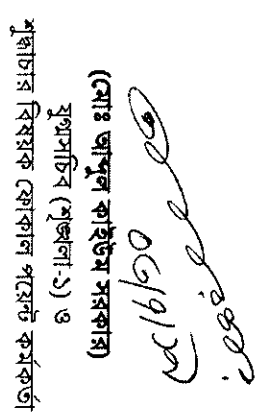 (মোঃ আব্দুল কাইউম সরকার)
যুগ্মসচিব (শৃঙ্খলা-১) ও
শুদ্ধাচার বিষয়ক ফোকাল পয়েন্ট কর্মকর্তা